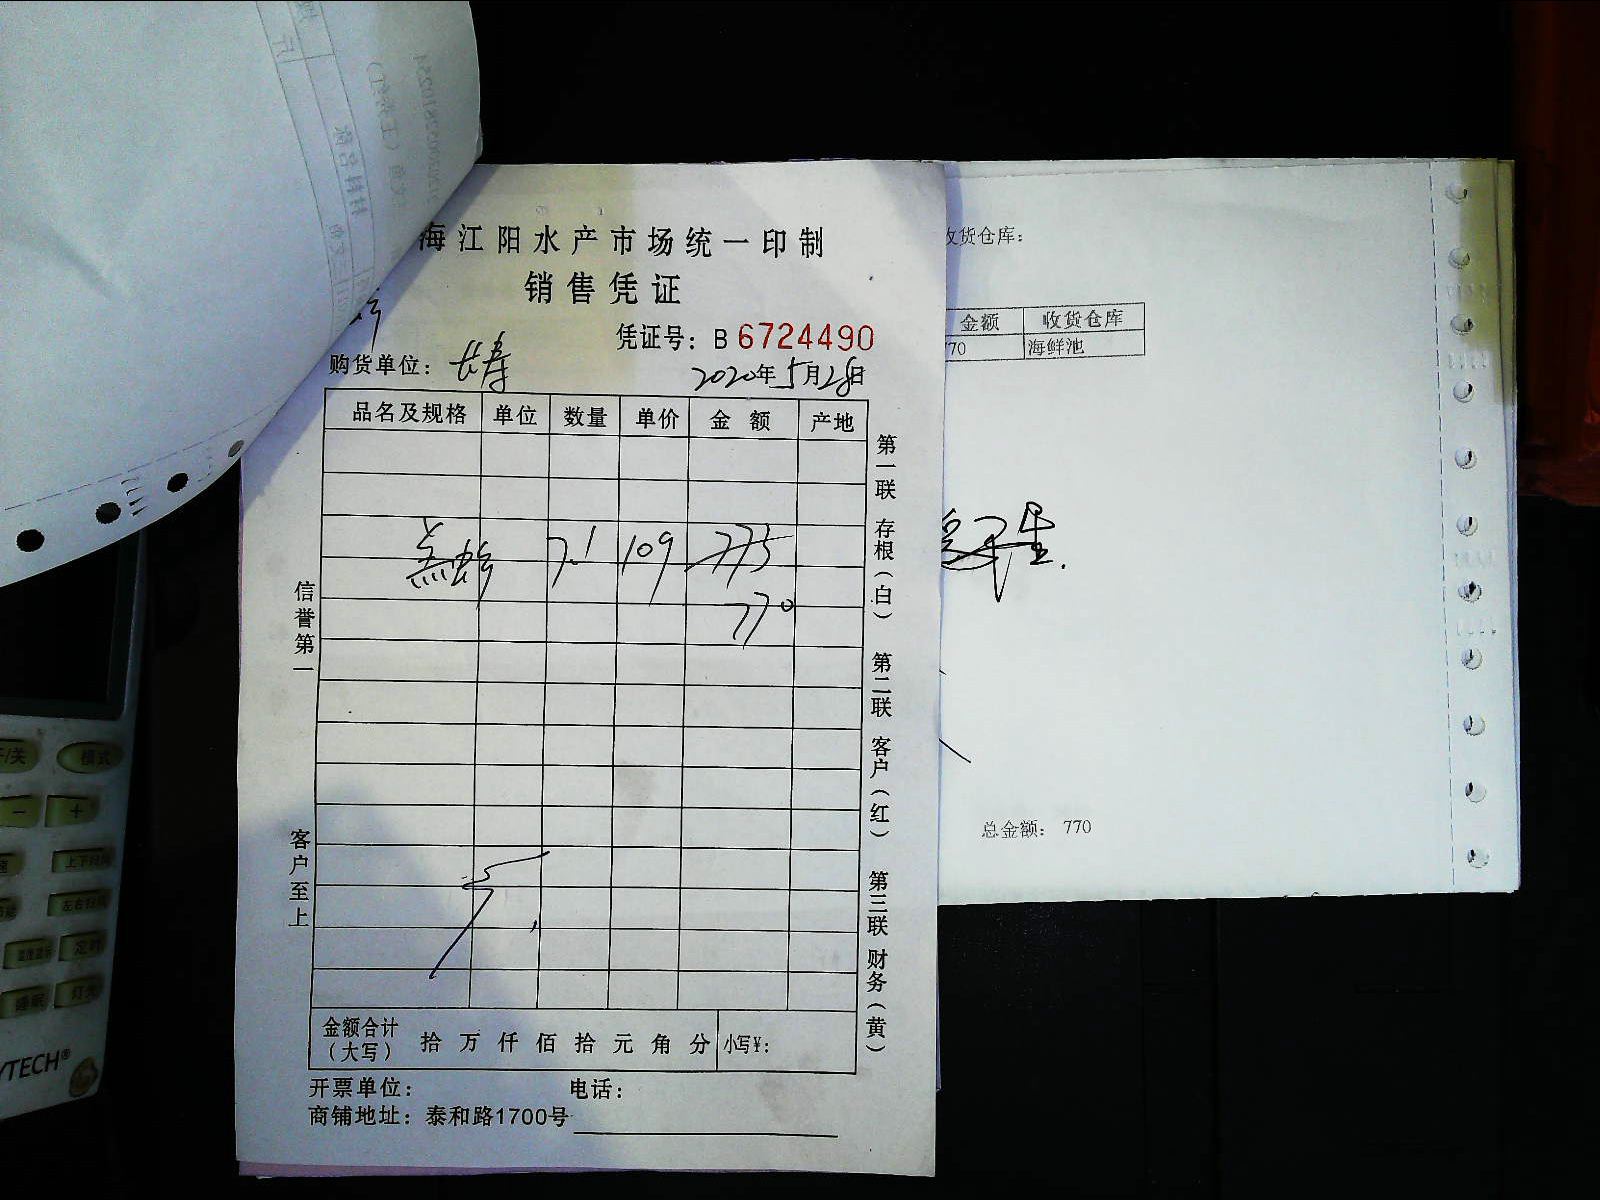 海江阳水产市场统一印制
销售凭证
凭证号：B 6724490
购货单位：长寿
2020年5月28日
品名及规格 单位 数量 单价 金额 产地
7.1 109 775
770
金额合计（大写） 拾万仟佰拾元角分 小写¥：
开票单位： 电话：
商铺地址：泰和路1700号
信誉第一
客户至上
第一联 存根（白）
第二联 客户（红）
第三联 财务（黄）
收货仓库：
金额 收货仓库
70 海鲜池
总金额： 770
开/关 模式
－ ＋
上下扫风
左右扫风
定时
睡眠 灯光
YTECH®